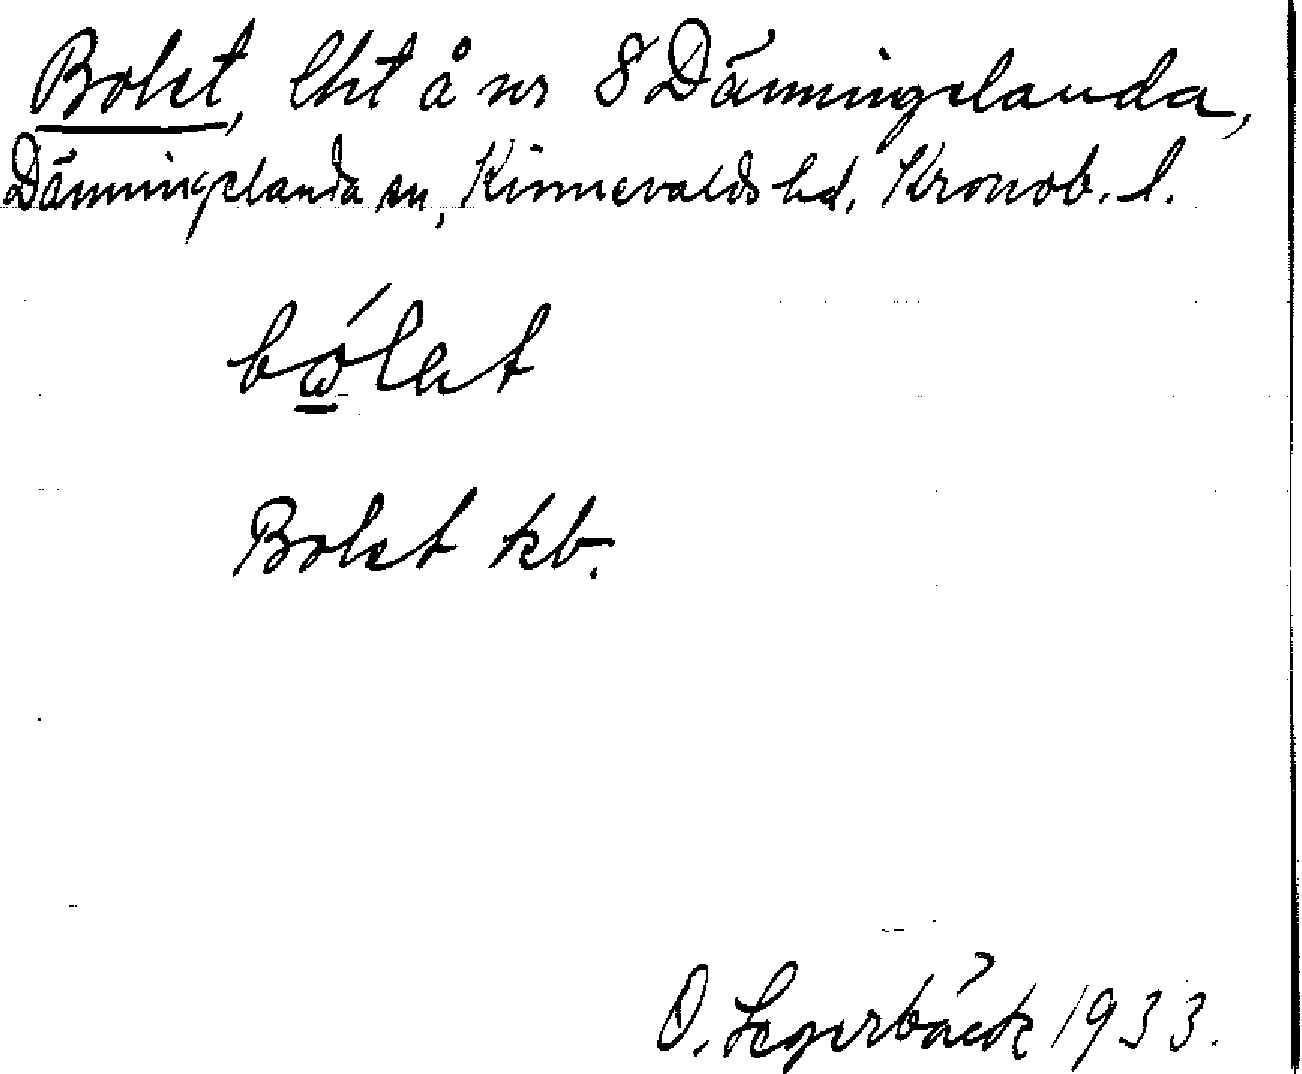 Bolet, lht å nr 8 Dänningelanda,
Dänningelanda sn, Kinnevalds hd, Kronob. l.
bώlet
Bolet kb.
O. Legerbäck 1933.